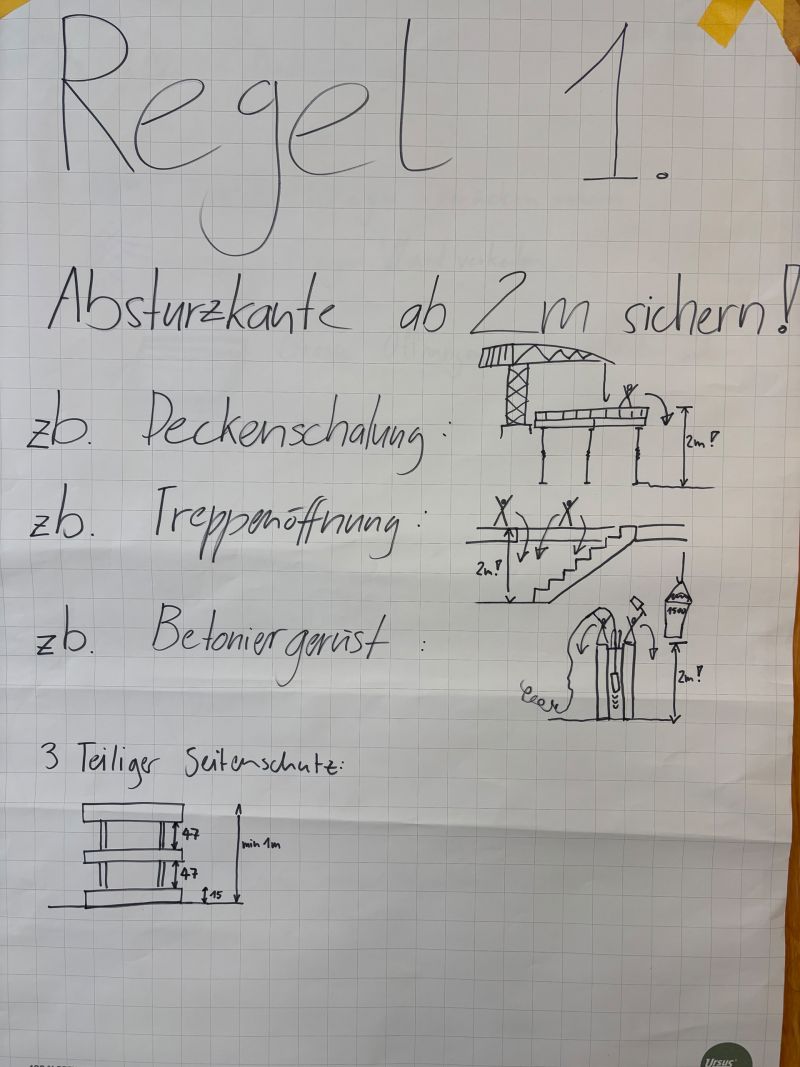 Regel 1.
Absturzkante ab 2m sichern!
zb. Deckenschalung:
2m!
zb. Treppenöffnung:
2m!
1500
zb. Betoniergerüst:
2m!
3 Teiliger Seitenschutz:
47
min 1m
47
15
Ursus